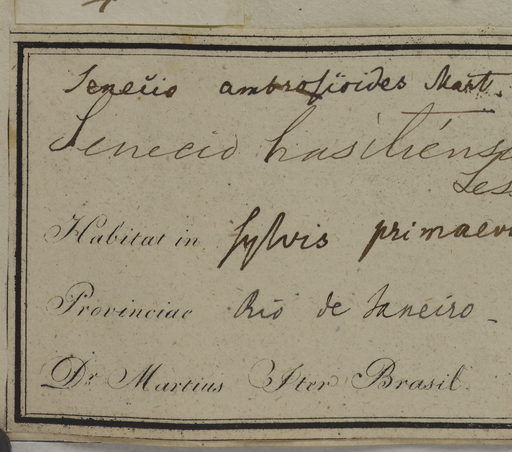 Senecio ambrosioides Mart.
Senecio brasiliensis
Less
Habitat in Sylvis primaev
Provinciae Rio de Janeiro -
Dr. Martius Iter Brasil.